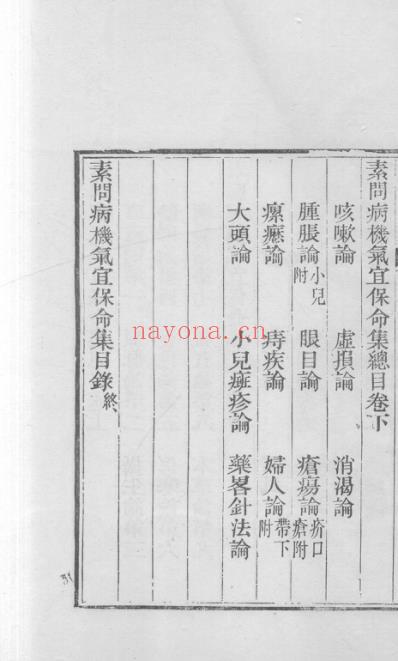 素問病機氣宜保命集總目卷下
咳嗽論 虛損論 消渴論
腫脹論小兒附 眼目論 瘡瘍論疥口瘡附
瘰癧論 痔疾論 婦人論帶下附
大頭論 小兒癍疹論 藥畧針法論
素問病機氣宜保命集目錄終
nayona.cn